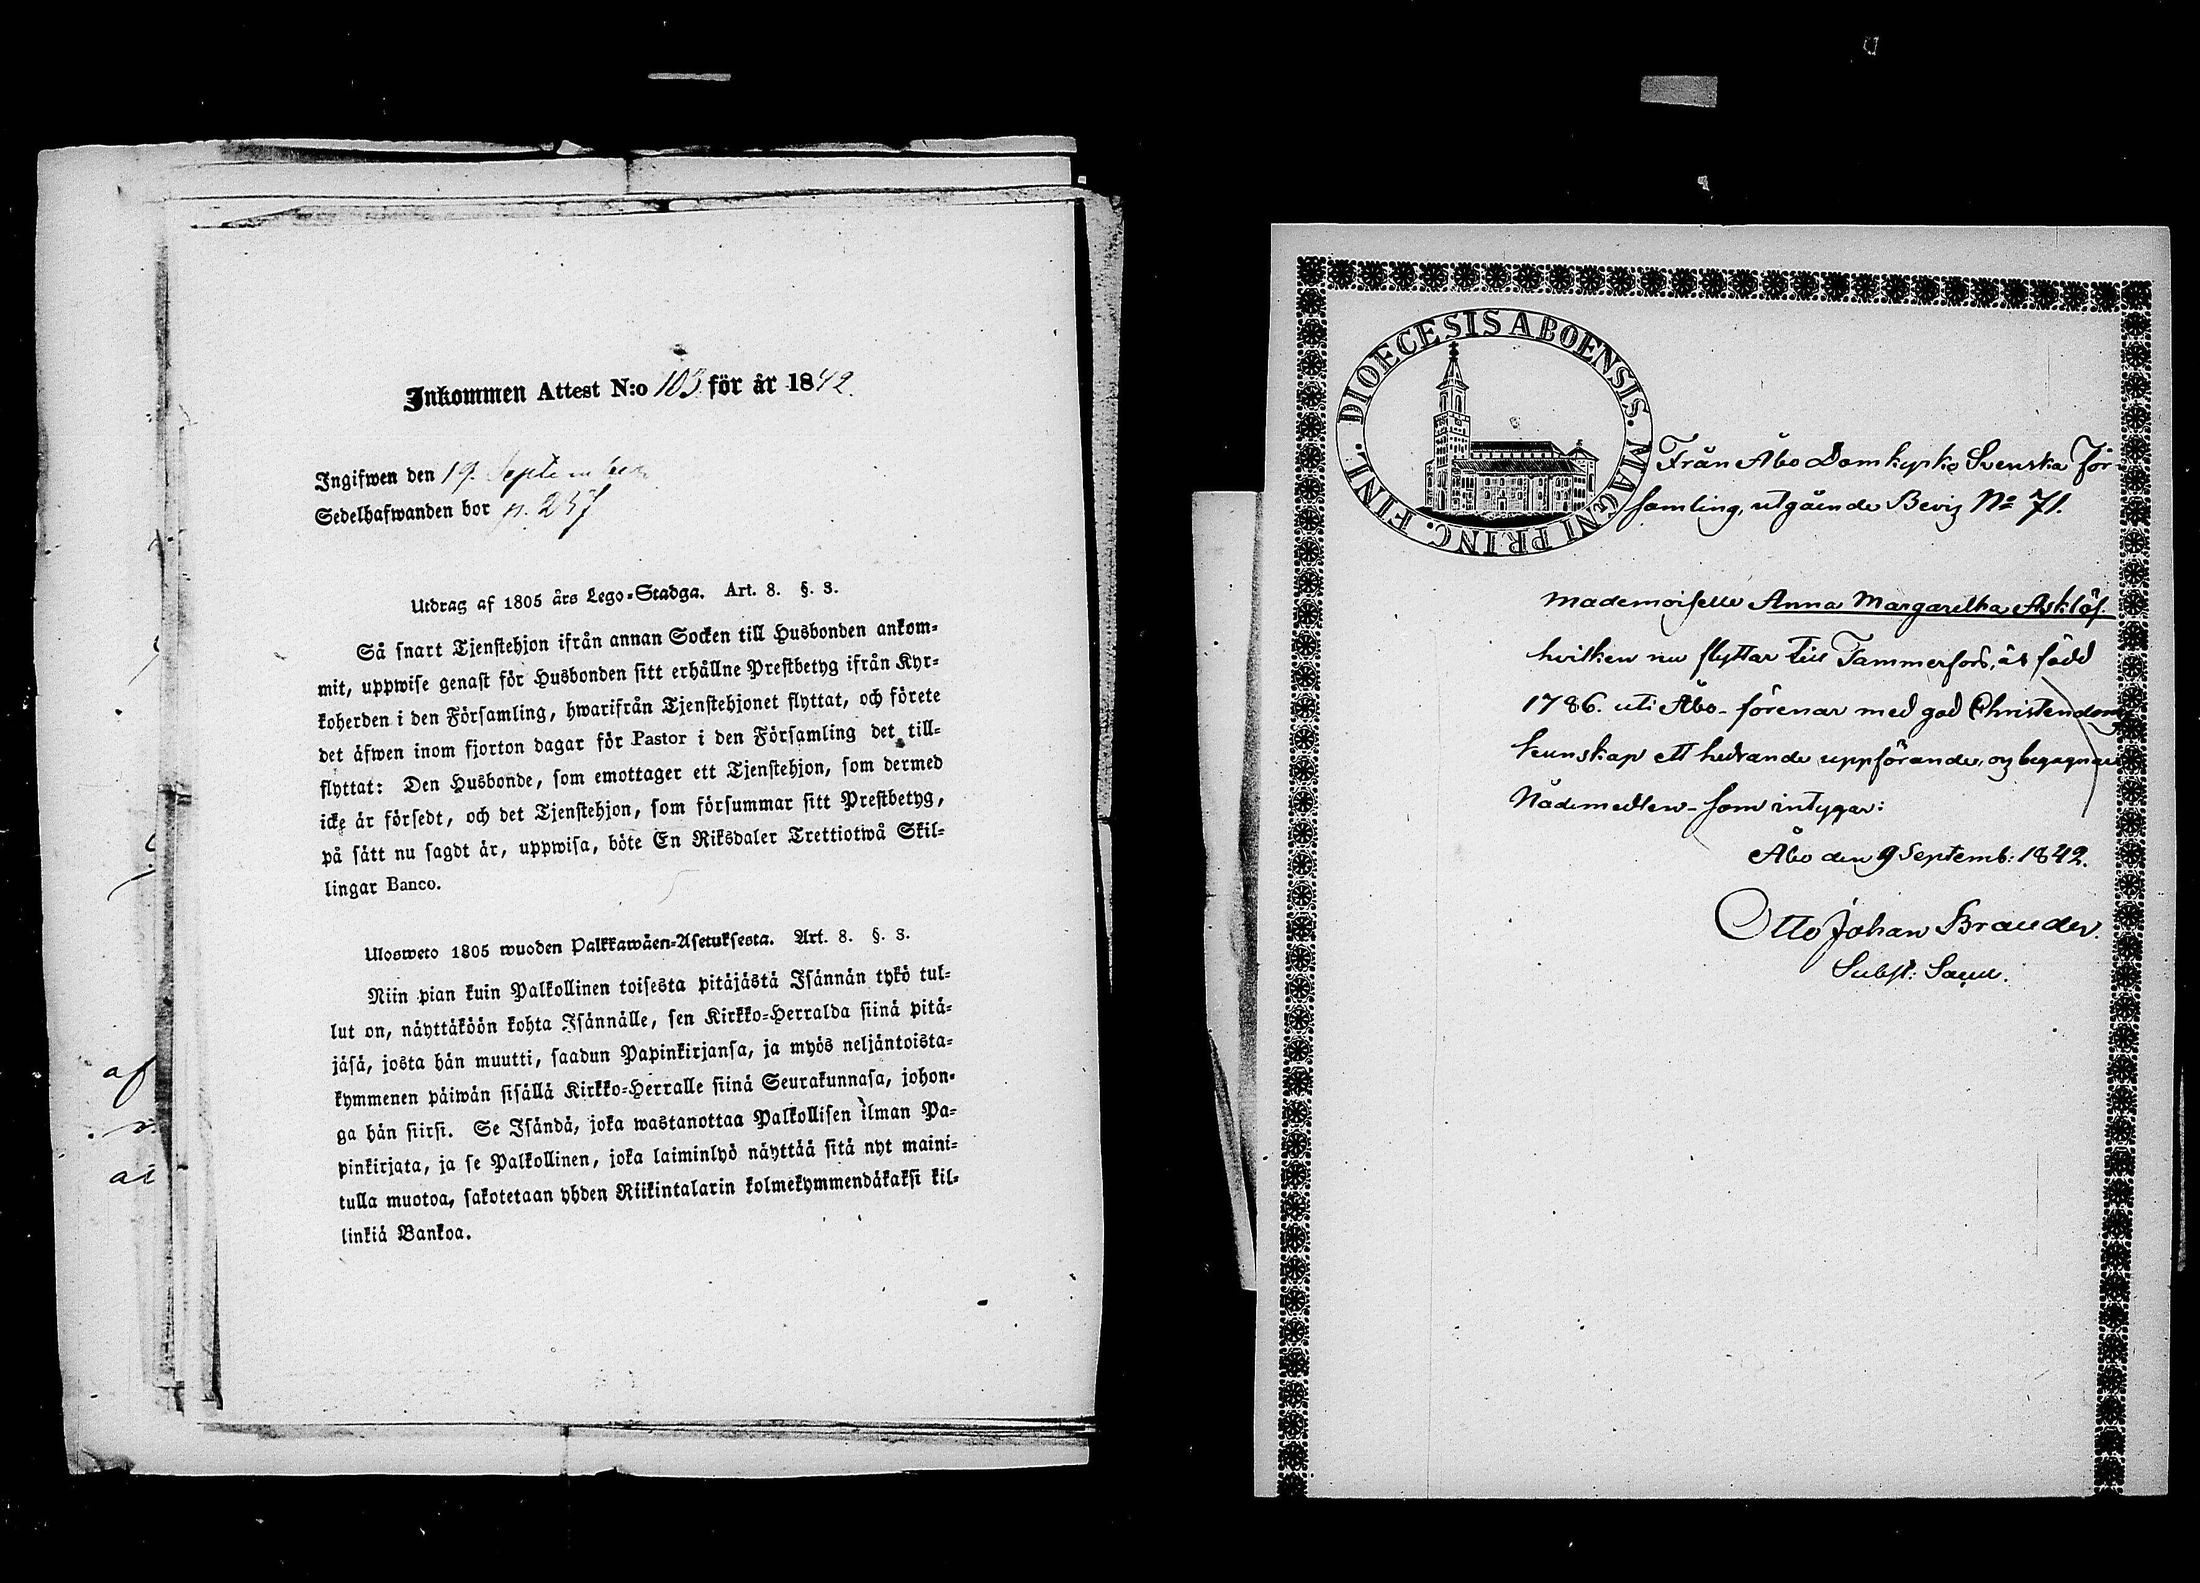 Inkommen Attest N:o 103 för år 1842.
Ingifwen den 19. September
Sedelhafwanden bor p. 257
Utdrag af 1805 års Lego-Stadga. Art. 8. §. 3.
Så snart Tjenstehjon ifrån annan Socken till Husbonden ankom-
mit, uppwise genast för Husbonden sitt erhållne Prestbetyg ifrån Kyr-
koherden i den Församling, hwarifrån Tjenstehjonet flyttat, och förete
det äfwen inom fjorton dagar för Pastor i den Församling det till-
flyttat: Den Husbonde, som emottager ett Tjenstehjon, som dermed
icke är försedt, och det Tjenstehjon, som försummar sitt Prestbetyg,
på sätt nu sagdt är, uppwisa, böte En Riksdaler Trettiotwå Skil-
lingar Banco.
Ulosweto 1805 wuoden Palkkawäen-Asetuksesta. Art. 8. §. 3.
Niin pian kuin Palkollinen toisesta pitäjästä Isännän tykö tul-
lut on, näyttäköön kohta Isännälle, sen Kirkko-Herralda siinä pitä-
jäsä, josta hän muutti, saadun Papinkirjansa, ja myös neljäntoista-
kymmenen päiwän sisällä Kirkko-Herralle siinä Seurakunnasa, johon-
ga hän siirsi. Se Isändä, joka wastanottaa Palkollisen ilman Pa-
pinkirjata, ja se Palkollinen, joka laiminlyö näyttää sitä nyt maini-
tulla muotoa, sakotetaan yhden Riikintalarin kolmekymmendäkaksi kil-
linkiä Bankoa.
af
ai
DIOECESIS ABOENSIS. MAGNI PRINC. FINL.
Från Åbo Domkyrko Svenska För-
samling, utgående Bevis No 71.
Mademoiselle Anna Margaretha Asklöf.
hvilken nu flyttar till Tammerfors, är född
1786. uti Åbo- förenar med god Christendoms
kunskap ett hedrande uppförande, og begagnar
Nådemedlen- som intygar:
Åbo den 9 Septemb: 1842.
Otto Johan Brander.
Subst: Sacell.